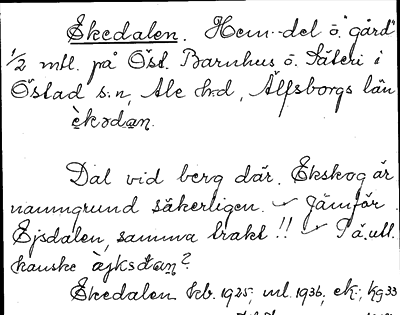 Ekedalen. Hem.-del o. "gård"
1/2 mtl. på Öst. Barnhus o. Säteri i
Östad s:n, Ale h:d, Älfsborgs län
èkədaṇ.
Dal vid berg där. Ekskog är
namngrund säkerligen. – Jämför
Ejsdalen, samma trakt!! –
kanske
Ekedalen kb. 1925, ml. 1936, ek., kg 33